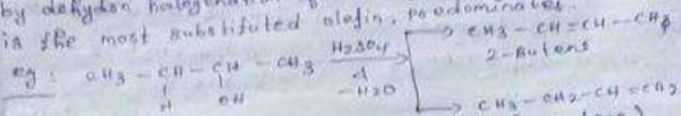 by dehydro halogenation
is the most substituted olefin, predominates.
eg: CH3 - CH - CH - CH3 H2SO4 → CH3 - CH = CH - CH3
H OH Δ -H2O 2-Butene
→ CH3 - CH2 - CH = CH2